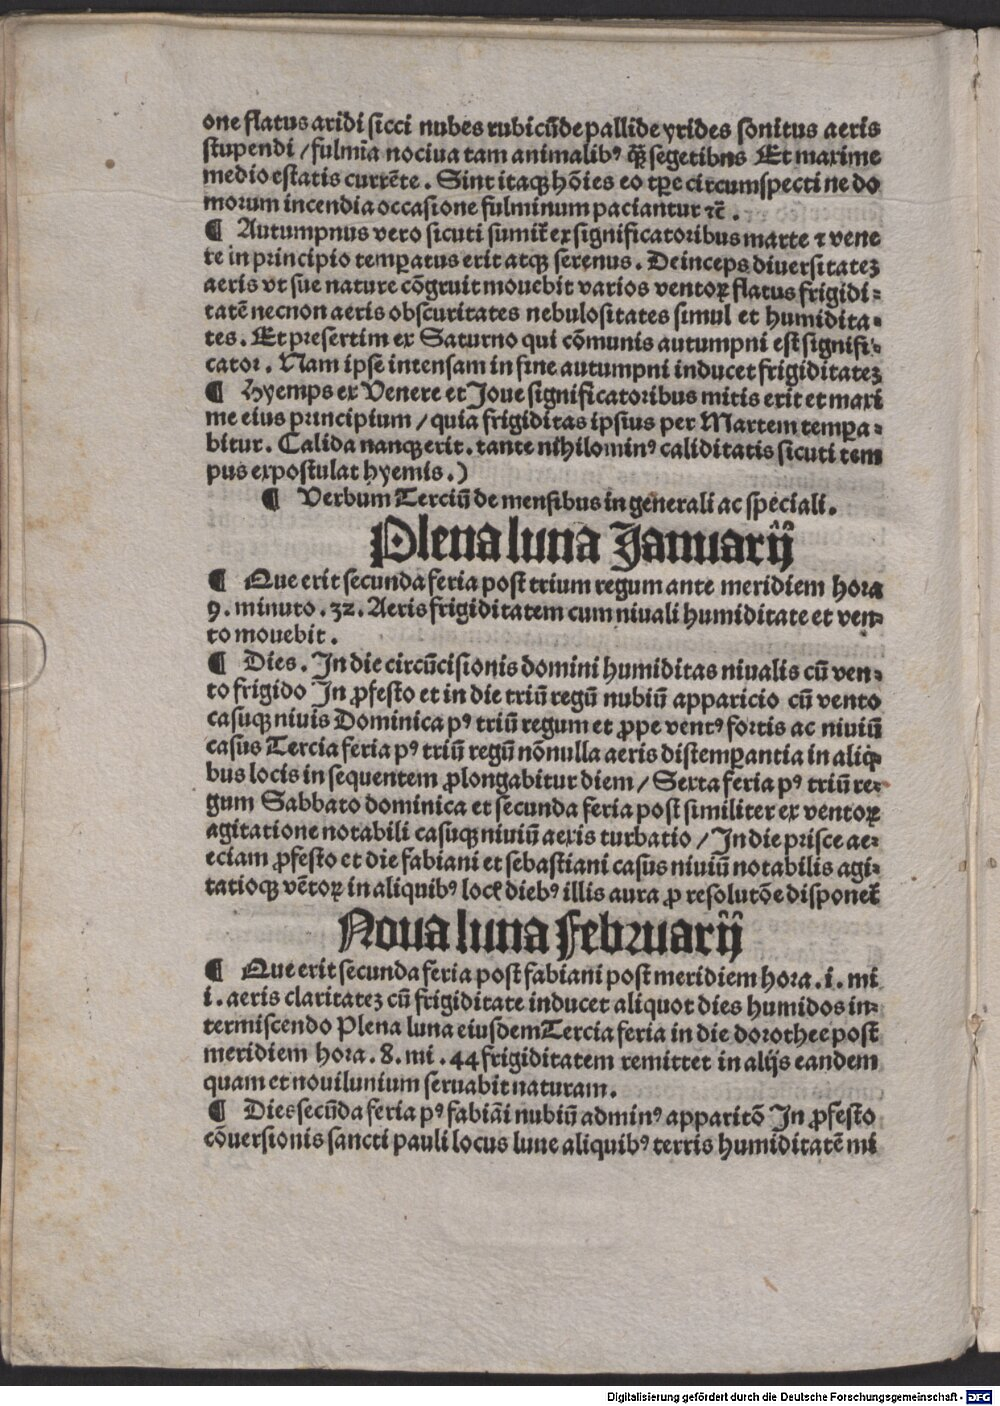 one flatus aridi sicci nubes rubicūde pallide yrides sonitus aeris
stupendi / fulmīa nociua tam animalibꝰ q̄ꝫ segetibns Et maxime
medio estatis currēte . Sint itaqꝫ hōies eo tꝑe circumspecti ne do
morum incendia occasione fulminum paciantur ⁊c̄ .
¶ Autumpnus vero sicuti sumit᷑ ex significatoribus marte ⁊ vene
re in principio temꝑatus erit atqꝫ serenus . Deinceps diuersitateꝫ
aeris vt sue nature cōgruit mouebit varios ventoꝝ flatus frigidi⸗
tatē necnon aeris obscuritates nebulositates simul et humidita⸗
tes . Et presertim ex Saturno qui cōmunis autumpni est signifi⸗
cator . Nam ipse intensam in fine autumpni inducet frigiditateꝫ
¶ Hyemps ex Venere et Joue significatoribus mitis erit et maxi
me eius principium / quia frigiditas ipsius per Martem temꝑa⸗
bitur . Calida nanqꝫ erit . tante nihilominꝰ caliditatis sicuti tem
pus expostulat hyemis .)
¶ Verbum Terciū de mensibus in generali ac speciali .
Plena luna Januarij
¶ Que erit secunda feria post trium regum ante meridiem hora
9 . minuto . 32 . Aeris frigiditatem cum niuali humiditate et ven⸗
to mouebit .
¶ Dies . In die circūcisionis domini humiditas niualis cū ven⸗
to frigido In ꝓfesto et in die triū regū nubiū apparicio cū vento
casuqꝫ niuis Dominica pꝰ triū regum et ꝓpe ventꝰ fortis ac niuiū
casus Tercia feria pꝰ triū regū nōnulla aeris distemꝑantia in aliq⸗
bus locis in sequentem ꝓlongabitur diem / Sexta feria pꝰ triū re⸗
gum Sabbato dominica et secunda feria post similiter ex ventoꝝ
agitatione notabili casuqꝫ niuiū aeris turbatio / In die prisce ae⸗
eciam ꝓfesto et die fabiani et sebastiani casus niuiū notabilis agi⸗
tatioqꝫ vētoꝝ in aliquibꝰ locꝭ diebꝰ illis aura ꝓ resolutōe disponet᷑
Noua luna Februarij
¶ Que erit secunda feria post fabiani post meridiem hora . i . mi
i . aeris claritateꝫ cū frigiditate inducet aliquot dies humidos in⸗
termiscendo Plena luna eiusdem Tercia feria in die dorothee post
meridiem hora . 8 . mi . 44 frigiditatem remittet in alijs eandem
quam et nouilunium seruabit naturam .
¶ Dies secūda feria pꝰ fabiāi nubiū adminꝰ apparitō In ꝓfesto
cōuersionis sancti pauli locus lune aliquibꝰ terris humiditatē mi
Digitalisierung gefördert durch die Deutsche Forschungsgemeinschaft - DFG